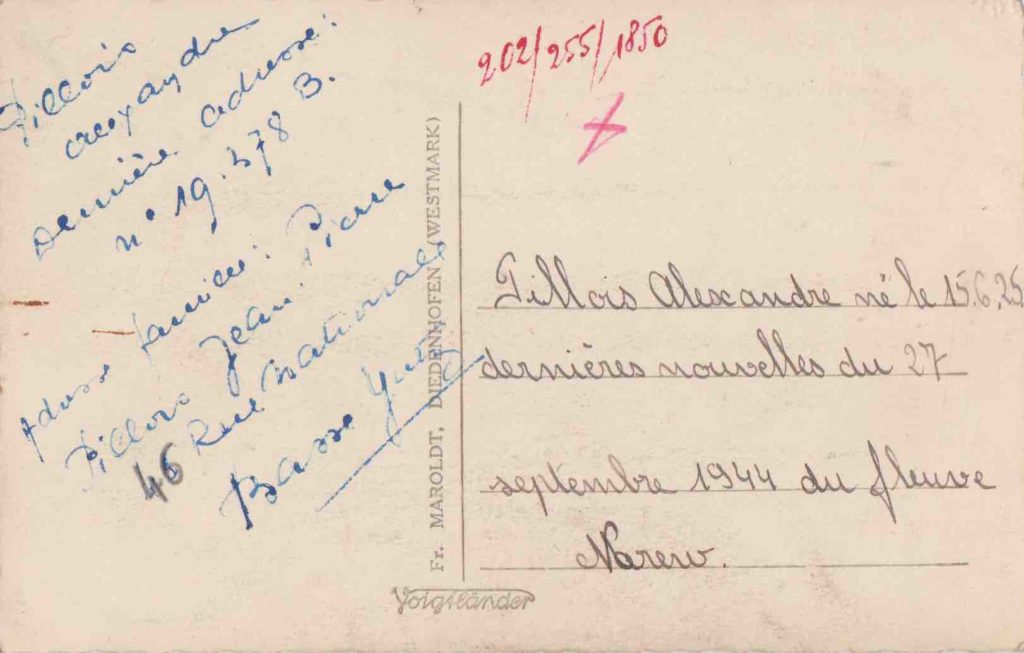 Pillois
Alexandre
Dernière adresse:
n° 19.578 B.
Adresse famille:
Pillois Jean-Pierre
46 Rue Nationale
Basse Yutz
Fr. MAROLDT, DIEDENHOFEN (WESTMARK)
Voigtländer
202/255/1850
X
Pillois Alexandre né le 15.6.25
dernières nouvelles du 27
septembre 1944 du fleuve
Narew.